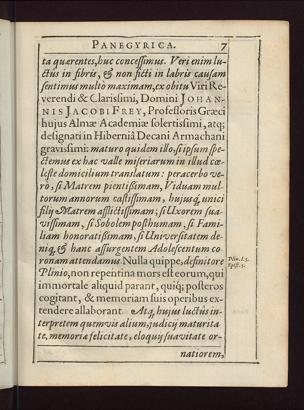 PANEGYRICA. 7
ta quærentes, huc concessimus. Veri enim lu-
ctus in fibris, & non ficti in labris causam
sentimus multo maximam, ex obitu Viri Re-
verendi & Clarissimi, Domini JOHAN-
NIS JACOBI FREY, Professoris Græci
hujus Almæ Academiæ solertissimi, atq;
designati in Hiberniâ Decani Armachani
gravissimi: maturo quidem illo, si ipsum spe-
ctemus ex hac valle miseriarum in illud cœ-
leste domicilium translatum: peracerbo ve-
rò, si Matrem pientissimam, Viduam mul-
torum annorum castissimam, hujusq; unici
filij Matrem afflictissimam; si Uxorem sua-
vissimam, si Sobolem posthumam, si Fami-
liam honoratissimam, si Universitatem de-
niq; & hanc assurgentem Adolescentum co-
ronam attendamus. Nulla quippe, definitore
Plinio, non repentina mors est eorum, qui
immortale aliquid parant, quiq; posteros
cogitant, & memoriam suis operibus ex-
tendere allaborant. Atq; hujus luctûs in-
terpretem quemvis alium, judicij maturita
te, memoriæ felicitate, eloquij suavitate or-
natiorem,
Plin. l. 5.
Epist. 5.